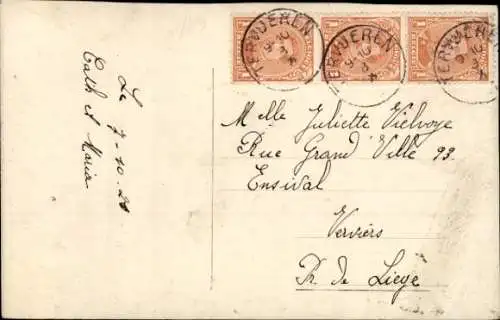 TERVUEREN
TERVUEREN
TERVUEREN
Le 7-10-21
Cath et Maria
Melle Juliette Vielvoye
Rue Grand Ville 93.
Ensival
Verviers
Pr. de Liege